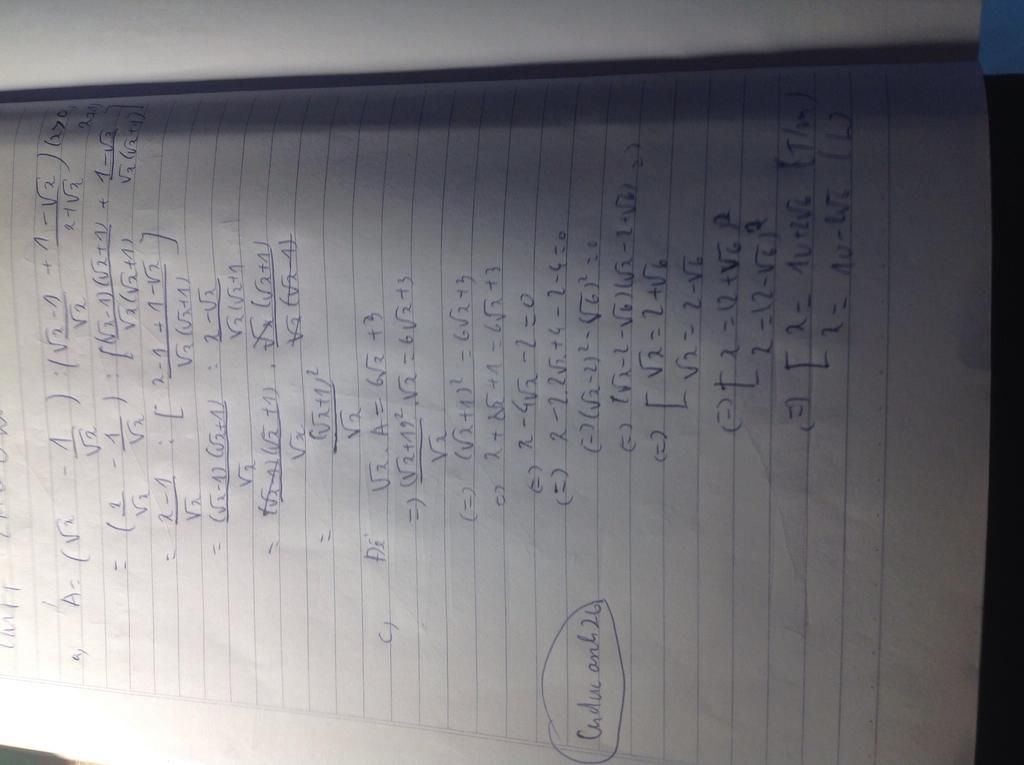 a, A = (√x - 1/√x) : (√x-1/√x + 1-√x/x+√x) (x>0,
= (x/√x - 1/√x) : [(√x-1)(√x+1)/√x(√x+1) + 1-√x/√x(√x+1)]
= x-1/√x : [x-1+1-√x/√x(√x+1)]
= (√x-1)(√x+1)/√x : x-√x/√x(√x+1
= (√x-1)(√x+1)/√x . √x(√x+1)/√x(√x-1)
= (√x+1)²/√x
c, Để √x . A = 6√x + 3
=> (√x+1)²/√x √x = 6√x+3
(=) (√x+1)² = 6√x+3
(=) x+2√x+1 = 6√x+3
(=) x-4√x-2=0
(=) x-2.2√x+4-2-4=0
(=) (√x-2)²-(√6)²=0
(=) (√x-2-√6)(√x-2+√6) =0
(=) [ √x = 2+√6
√x = 2-√6
(=) [ x = (2+√6)²
x = (2-√6)²
(=) [ x = 10+4√6 (T/m)
x = 10-4√6 (L)